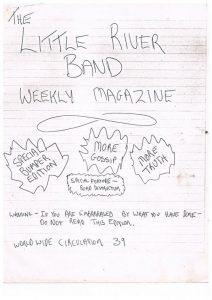 THE
LITTLE RIVER
BAND
WEEKLY MAGAZINE
SPECIAL
BUMPER
EDITION
MORE
GOSSIP
MORE
TRUTH
SPECIAL FEATURE -
WARNING - IF YOU ARE EMBARRASED BY WHAT YOU HAVE DONE -
DO NOT READ THIS EDITION.
WORLD WIDE CIRCULATION 39